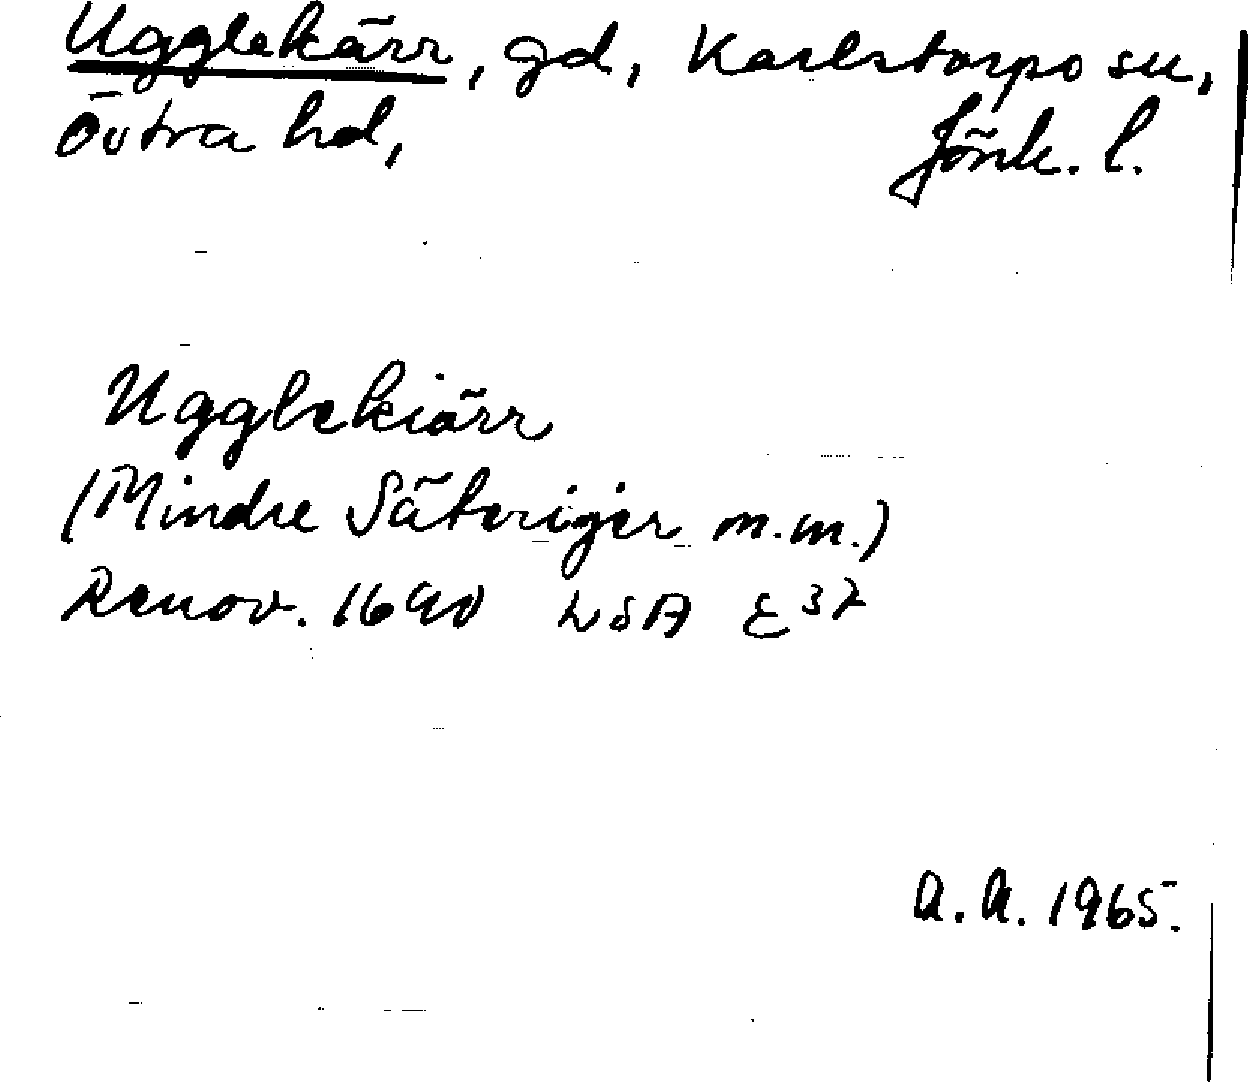 Ugglekärr, gd, Karlstorps sn,
Östra hd, Jönk. l.
Ugglekiärr
(Mindre Säterijer m.m.)
Renov. 1690 LSA E 37
A.A. 1965.